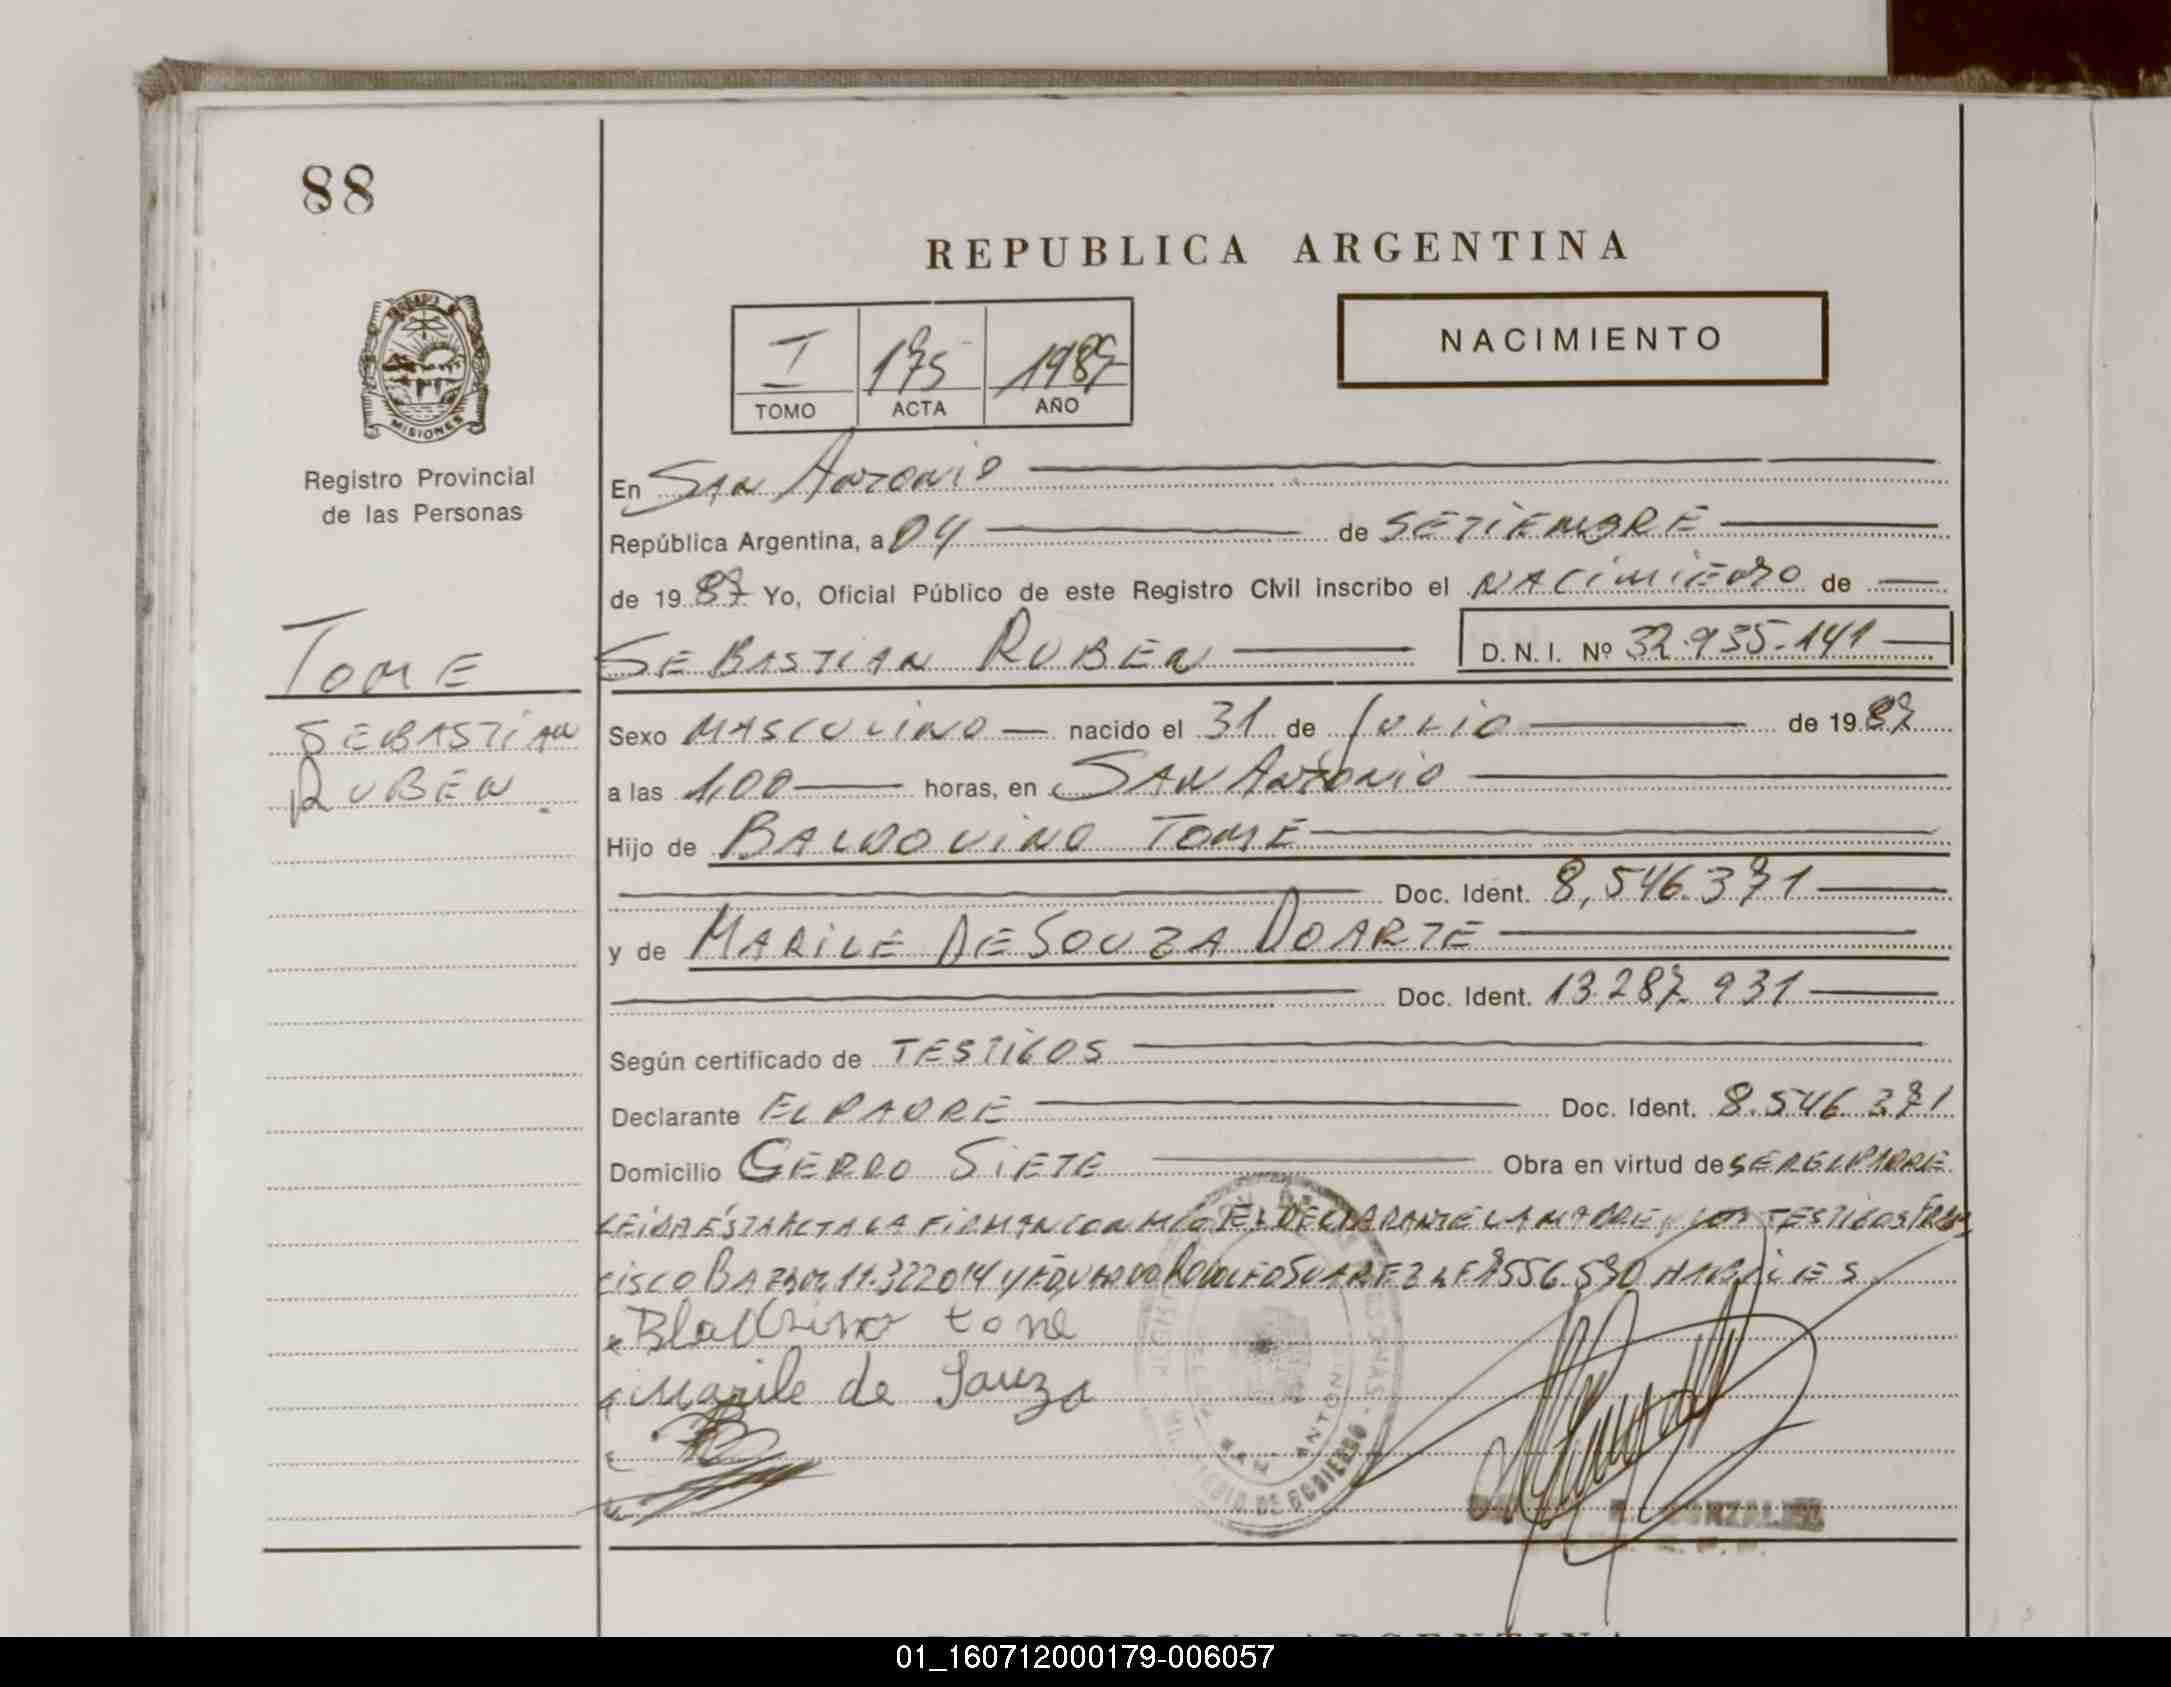 88
REPUBLICA ARGENTINA
NACIMIENTO
I 175 1987
TOMO ACTA AÑO
MISIONES
Registro Provincial
de las Personas
TOME
SEBASTIAN
RUBEN.
En SAN ANTONIO
República Argentina, a 04 de SETIEMBRE
de 1987 Yo, Oficial Público de este Registro Civil inscribo el NACIMIENTO de
SEBASTIAN RUBEN D. N. I. Nº 32.935.141
Sexo MASCULINO nacido el 31 de JULIO de 1987
a las 1,00 horas, en SAN ANTONIO
Hijo de BALDOVINO TOME
Doc. Ident. 8,546.371
y de MARILE DE SOUZA DOARTE
Doc. Ident. 13.287.931
Según certificado de TESTIGOS
Declarante EL PADRE Doc. Ident. 8.546.371
Domicilio CERRO SIETE Obra en virtud de SER EL PADRE
LEIDA ESTA ACTA LA FIRMAN CON MIGO EL DECLARANTE LA MADRE Y LOS TESTIGOS FRAN
CISCO 11.322014 Y EDUARDO RODOLFO SUAREZ HABILES
tome
Marile de Souza
SAN ANTONI
DE GOBIERNO
GONZALEZ
REPUBLICA ARGENTINA
01_160712000179-006057